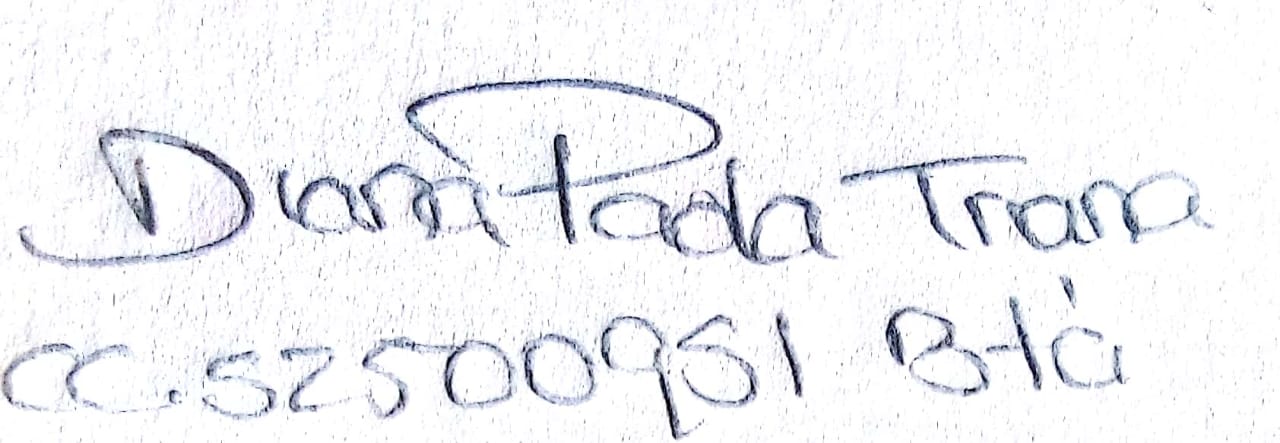 Diana Paola Triana
CC. 52500951 Btá